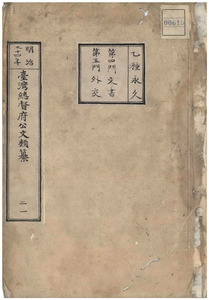 乙種永久
第四門文書
第五門外交
明治
三十四年
臺灣總督府公文類纂
二一